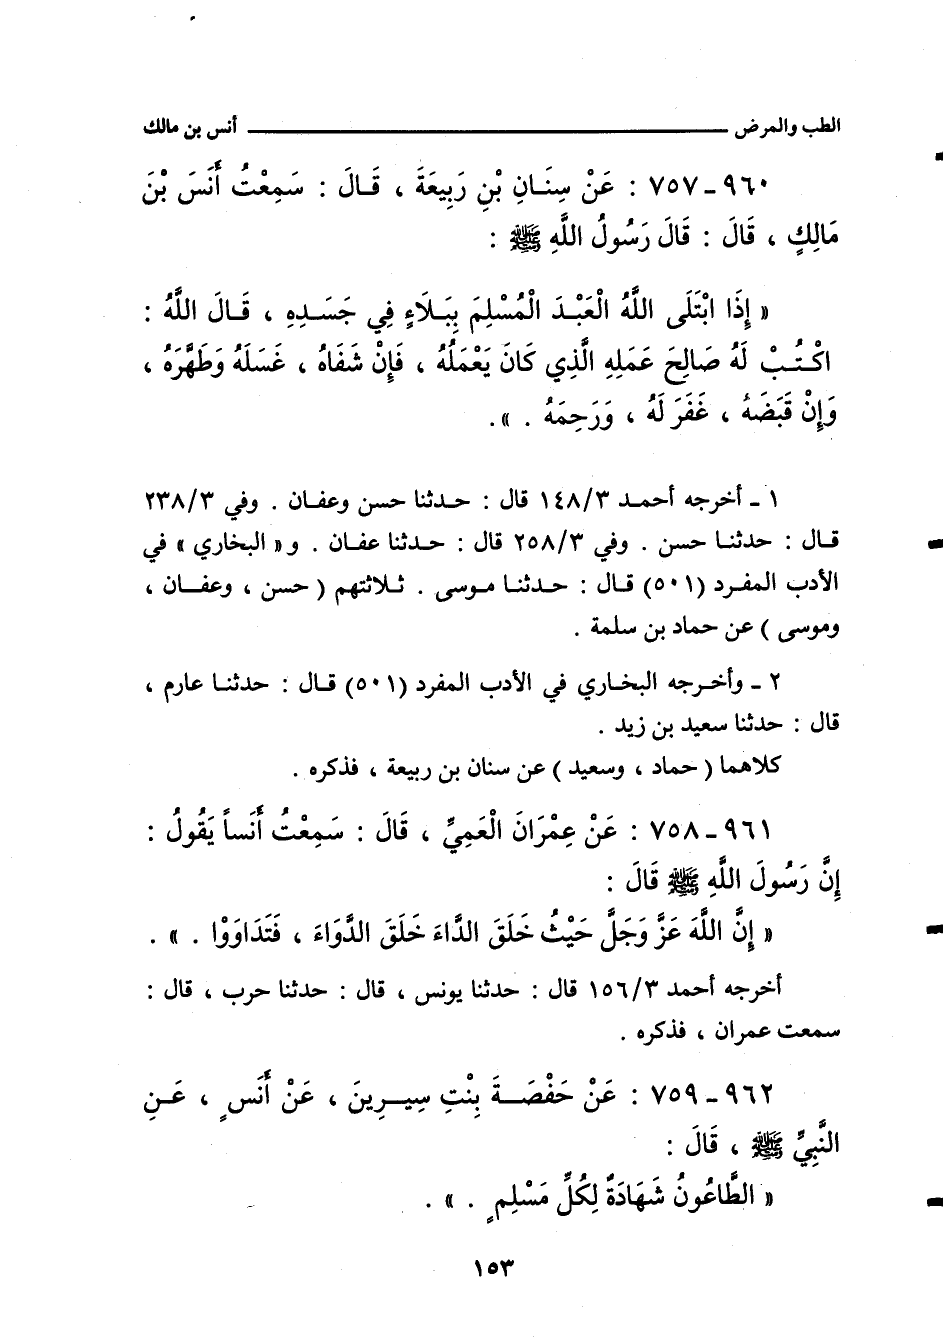 الطب والمرض ــــــــــ أنس بن مالك
٩٦٠ ـ ٧٥٧ : عَنْ سِنَانِ بْنِ رَبِيعَةَ ، قَالَ : سَمِعْتُ أَنَسَ بْنَ
مَالِكٍ ، قَالَ : قَالَ رَسُولُ اللَّهِ ﷺ :
« إِذَا ابْتَلَى اللَّهُ الْعَبْدَ الْمُسْلِمَ بِبَلَاءٍ فِي جَسَدِهِ ، قَالَ اللَّهُ :
اكْتُبْ لَهُ صَالِحَ عَمَلِهِ الَّذِي كَانَ يَعْمَلُهُ ، فَإِنْ شَفَاهُ ، غَسَلَهُ وَطَهَّرَهُ ،
وَإِنْ قَبَضَهُ ، غَفَرَ لَهُ ، وَرَحِمَهُ . ».
١ ـ أخرجه أحمد ١٤٨/٣ قال : حدثنا حسن وعفان . وفي ٢٣٨/٣
قال : حدثنا حسن . وفي ٢٥٨/٣ قال : حدثنا عفان . و« البخاري » في
الأدب المفرد (٥٠١) قال : حدثنا موسى . ثلاثتهم ( حسن ، وعفان ،
وموسى ) عن حماد بن سلمة .
٢ ـ وأخرجه البخاري في الأدب المفرد (٥٠١) قال : حدثنا عارم ،
قال : حدثنا سعيد بن زيد .
كلاهما ( حماد ، وسعيد ) عن سنان بن ربيعة ، فذكره .
٩٦١ ـ ٧٥٨ : عَنْ عِمْرَانَ الْعَمِيِّ ، قَالَ : سَمِعْتُ أَنَساً يَقُولُ :
إِنَّ رَسُولَ اللَّهِ ﷺ قَالَ :
« إِنَّ اللَّهَ عَزَّ وَجَلَّ حَيْثُ خَلَقَ الدَّاءَ خَلَقَ الدَّوَاءَ ، فَتَدَاوَوْا . » .
أخرجه أحمد ١٥٦/٣ قال : حدثنا يونس ، قال : حدثنا حرب ، قال :
سمعت عمران ، فذكره .
٩٦٢ ـ ٧٥٩ : عَنْ حَفْصَةَ بِنْتِ سِيرِينَ ، عَنْ أَنَسٍ ، عَنِ
النَّبِيِّ ﷺ ، قَالَ :
« الطَّاعُونُ شَهَادَةٌ لِكُلِّ مَسْلِمٍ . » .
١٥٣